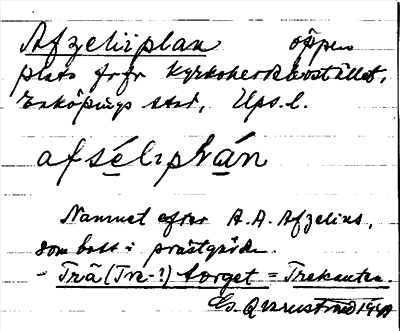 Afzeliiplan öppen
plats framför kyrkoherdebostället,
Enköpings stad, Ups. l.
afsélıplán
Namnet efter A. A. Afzelius,
som bott i prästgården.
- Trä (Tre-?) torget = Trekanten